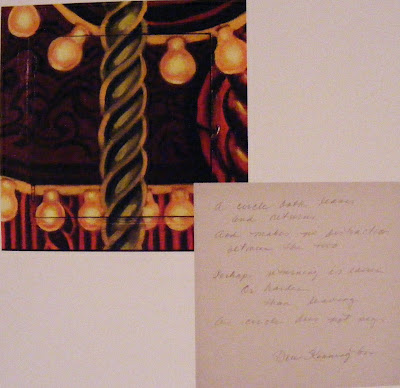 A circle both leaves
and returns
And makes no distinction
between the two
Perhaps returning is easier
Or harder
than leaving
A circle does not say.